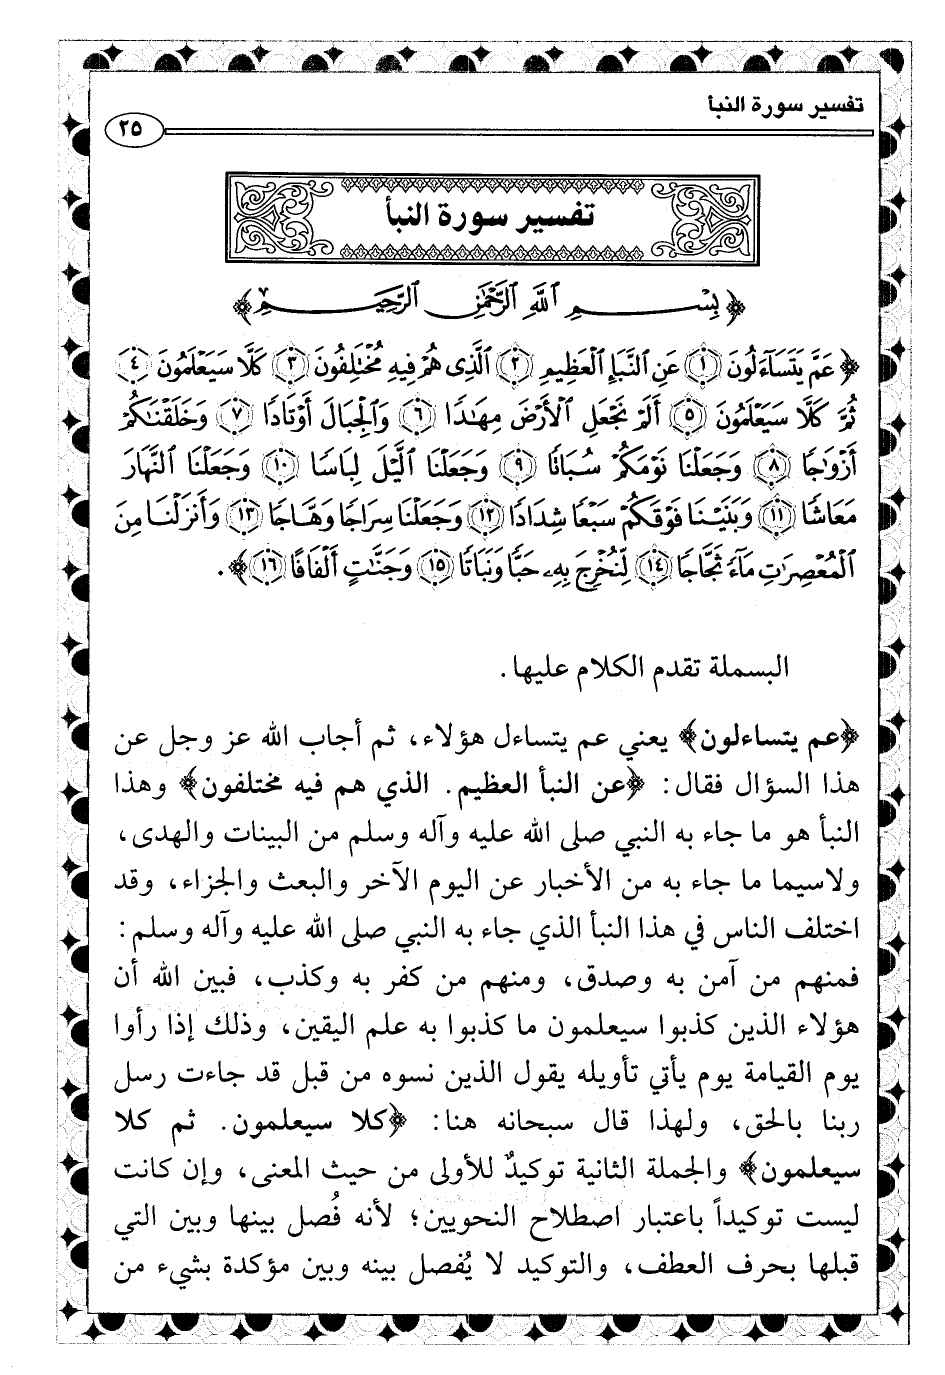 تفسير سورة النبأ
٢٥
تفسير سورة النبأ
﴿بِسْمِ ٱللَّهِ ٱلرَّحْمَٰنِ ٱلرَّحِيمِ﴾
﴿عَمَّ يَتَسَآءَلُونَ ١ عَنِ ٱلنَّبَإِ ٱلْعَظِيمِ ٢ ٱلَّذِى هُمْ فِيهِ مُخْتَلِفُونَ ٣ كَلَّا سَيَعْلَمُونَ ٤
ثُمَّ كَلَّا سَيَعْلَمُونَ ٥ أَلَمْ نَجْعَلِ ٱلْأَرْضَ مِهَٰدًا ٦ وَٱلْجِبَالَ أَوْتَادًا ٧ وَخَلَقْنَٰكُمْ
أَزْوَٰجًا ٨ وَجَعَلْنَا نَوْمَكُمْ سُبَاتًا ٩ وَجَعَلْنَا ٱلَّيْلَ لِبَاسًا ١٠ وَجَعَلْنَا ٱلنَّهَارَ
مَعَاشًا ١١ وَبَنَيْنَا فَوْقَكُمْ سَبْعًا شِدَادًا ١٢ وَجَعَلْنَا سِرَاجًا وَهَّاجًا ١٣ وَأَنزَلْنَا مِنَ
ٱلْمُعْصِرَٰتِ مَآءً ثَجَّاجًا ١٤ لِّنُخْرِجَ بِهِۦ حَبًّا وَنَبَاتًا ١٥ وَجَنَّٰتٍ أَلْفَافًا ١٦﴾.
البسملة تقدم الكلام عليها.
﴿عم يتساءلون﴾ يعني عم يتساءل هؤلاء، ثم أجاب الله عز وجل عن
هذا السؤال فقال: ﴿عن النبأ العظيم. الذي هم فيه مختلفون﴾ وهذا
النبأ هو ما جاء به النبي صلى الله عليه وآله وسلم من البينات والهدى،
ولاسيما ما جاء به من الأخبار عن اليوم الآخر والبعث والجزاء، وقد
اختلف الناس في هذا النبأ الذي جاء به النبي صلى الله عليه وآله وسلم:
فمنهم من آمن به وصدق، ومنهم من كفر به وكذب، فبين الله أن
هؤلاء الذين كذبوا سيعلمون ما كذبوا به علم اليقين، وذلك إذا رأوا
يوم القيامة يوم يأتي تأويله يقول الذين نسوه من قبل قد جاءت رسل
ربنا بالحق، ولهذا قال سبحانه هنا: ﴿كلا سيعلمون. ثم كلا
سيعلمون﴾ والجملة الثانية توكيدٌ للأولى من حيث المعنى، وإن كانت
ليست توكيداً باعتبار اصطلاح النحويين؛ لأنه فُصل بينها وبين التي
قبلها بحرف العطف، والتوكيد لا يُفصل بينه وبين مؤكدة بشيء من